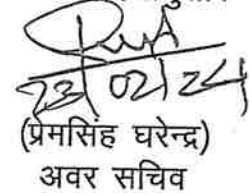 23/02/24
(प्रेमसिंह घरेन्द्र)
अवर सचिव